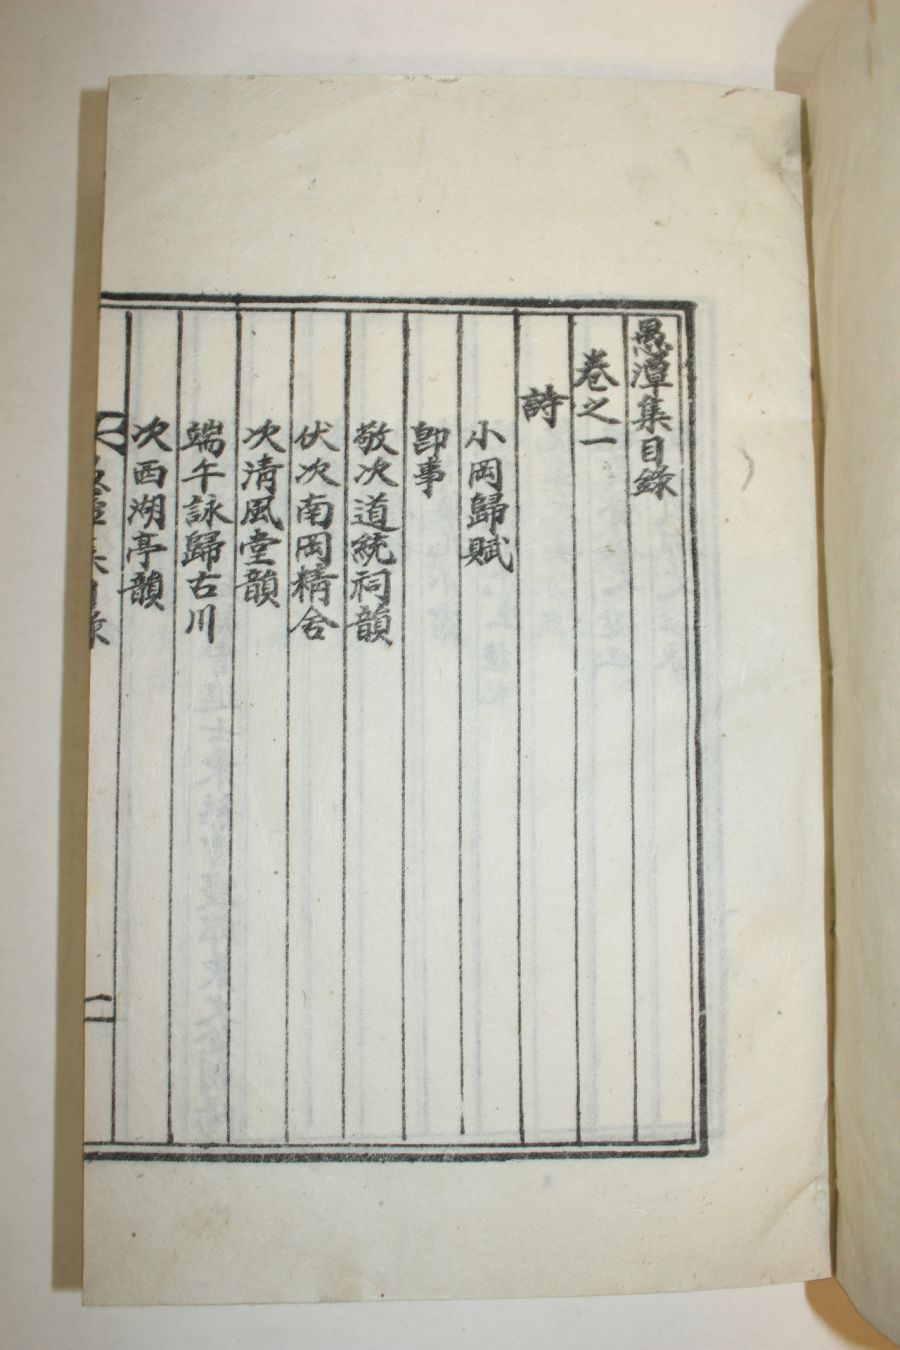 愚潭集目錄
卷之一
詩
小岡歸賦
卽事
敬次道統祠韻
伏次南岡精舍
次清風堂韻
端午詠歸古川
次西湖亭韻